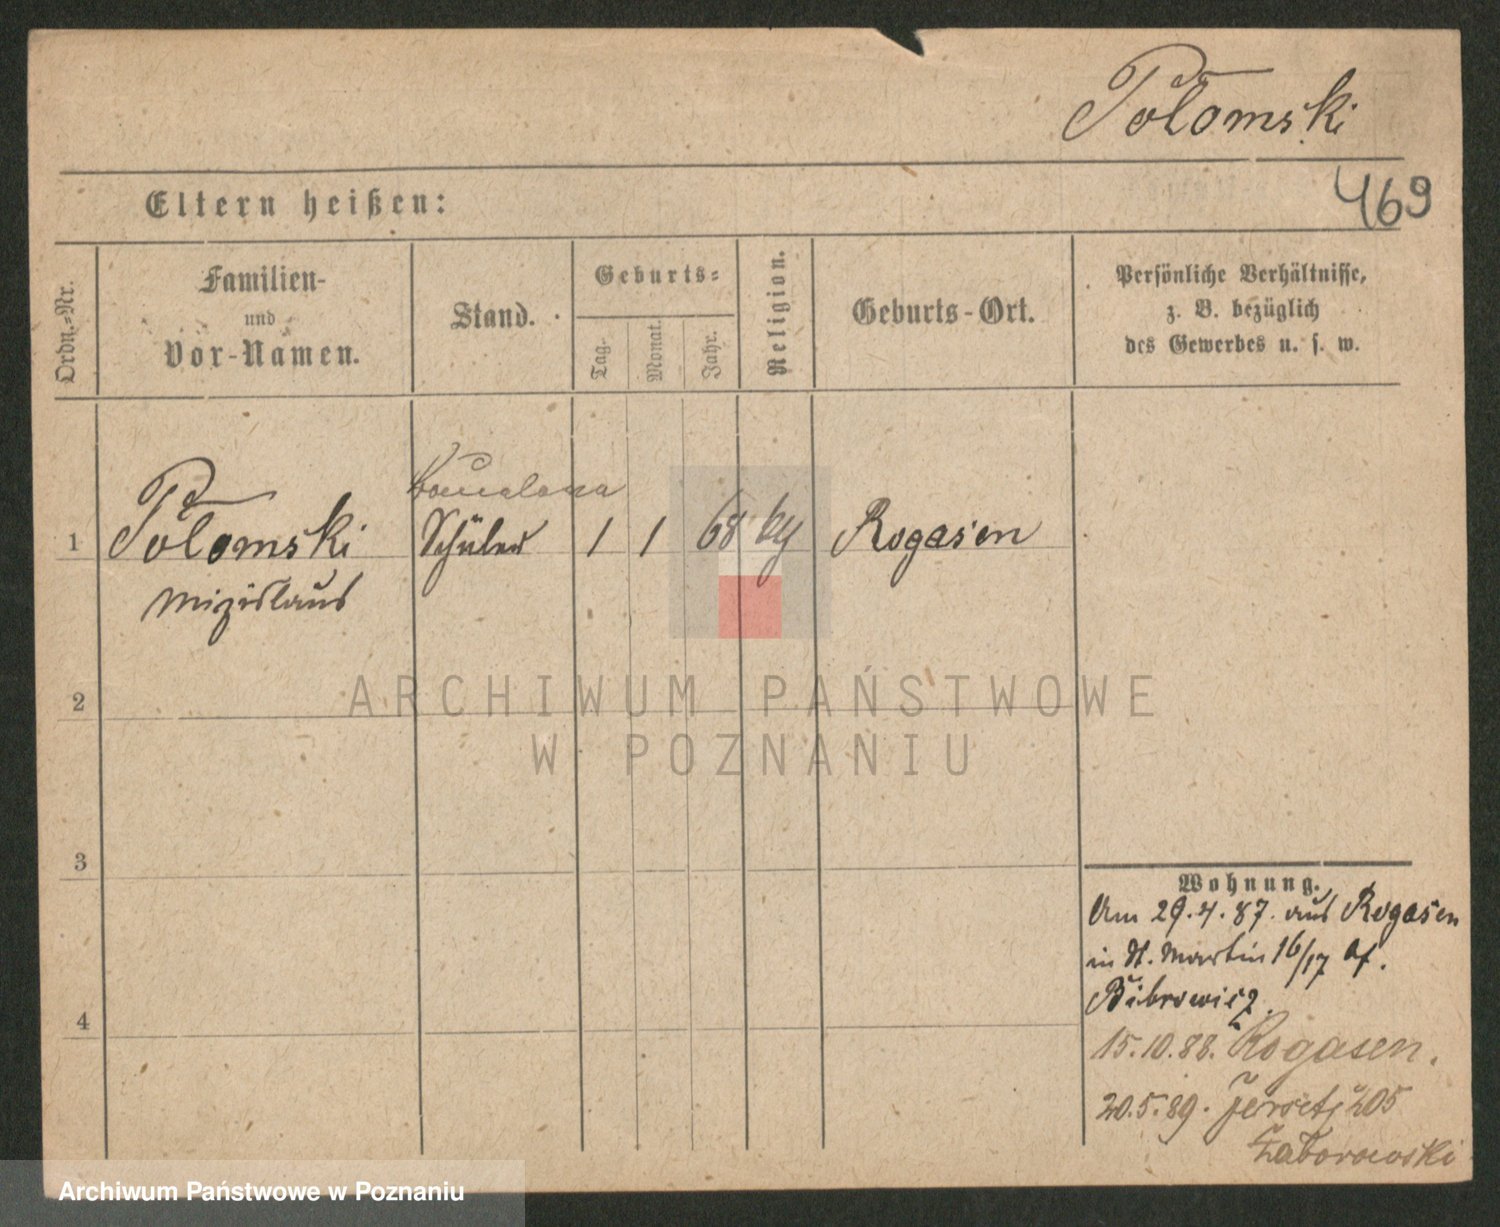 Połomski
469
Eltern heißen:
Ordn.-Nr.
Familien-
und
Vor-Namen.
Stand.
Geburts-
Tag.
Monat.
Jahr.
Religion.
Geburts-Ort.
Persönliche Verhältnisse,
z. B. bezüglich
des Gewerbes u. s. w.
1
Połomski
Schüler
1
1
68
Rogasen
Mizislaus
2
3
4
ARCHIWUM PAŃSTWOWE
W POZNANIU
Wohnung.
Am 29.4.87. aus Rogasen
in St. Martin 16/17 Af.
Bibrowicz.
15.10.88. Rogasen.
20.5.89. Jersitz 205
Zaborowski
Archiwum Państwowe w Poznaniu